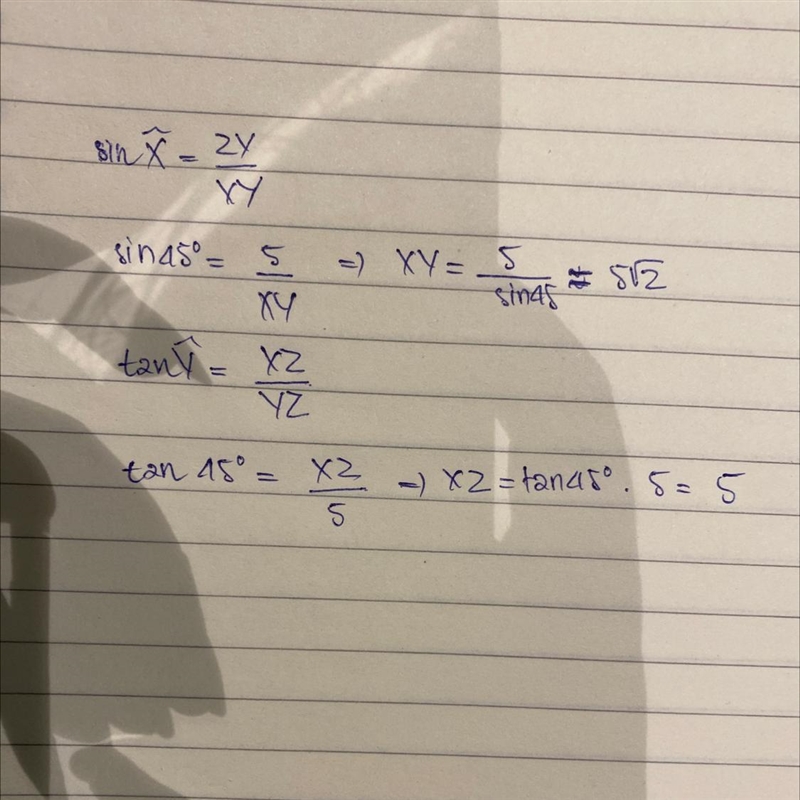 sin X̂ = ZY/XY
sin 45° = 5/XY => XY = 5/sin45 = 5√2
tan Ŷ = XZ/YZ
tan 45° = XZ/5 => XZ = tan45° . 5 = 5